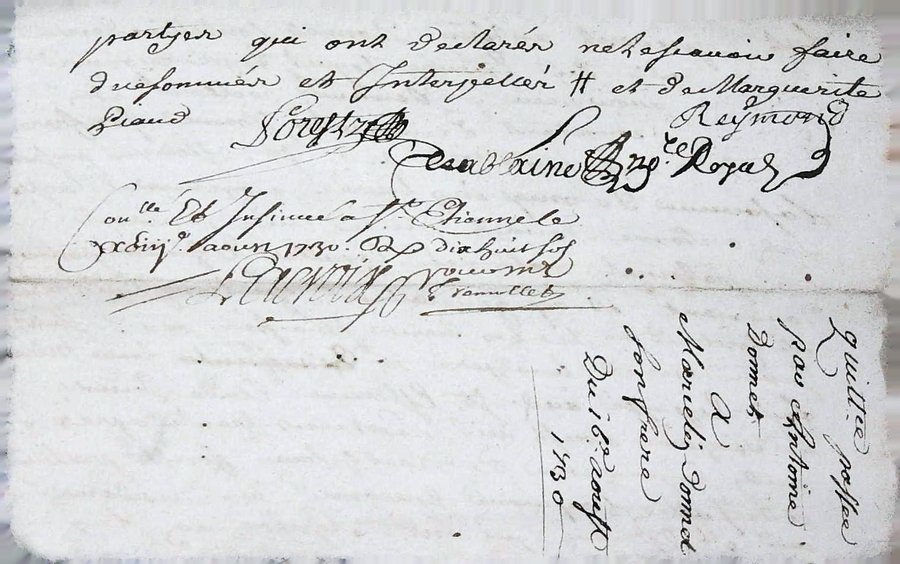 partyes qui ont declarér ne le scavoir faire
de ce sommér et Interpellér # et de Marguerite
Giaud Forest Reymond
Deablaine no.re Royal
Con.lle Et Insinué a St. Etienne le
aoust 1730. R dix huit sols
Lacroix
Quittce passée
par Antoine
Donnet
A
Mariedez Donnet
son frere
Du 16e aoust
1730